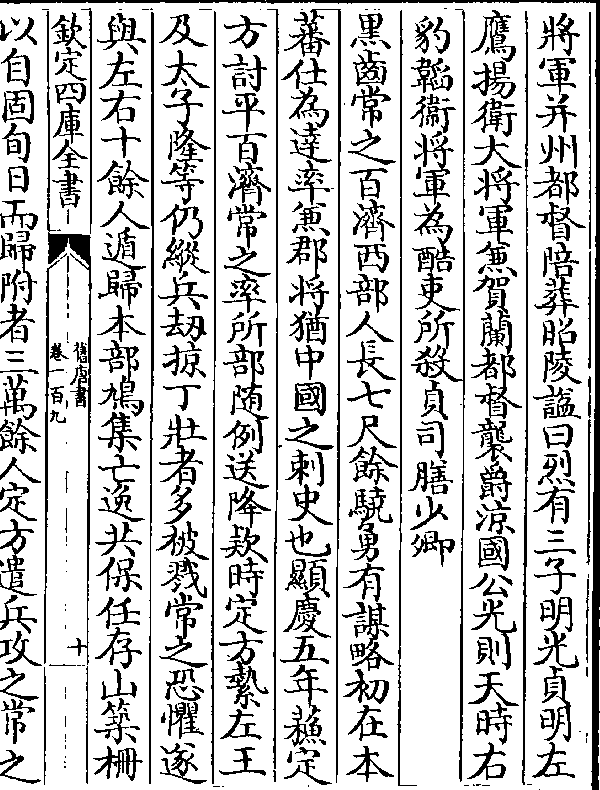 將軍并州都督陪葬昭陵諡曰烈有三子明光貞明左
鷹揚衛大將軍兼賀蘭都督襲爵涼國公光則天時右
豹韜衛將軍為酷吏所殺貞司膳少卿
黑齒常之百濟西部人長七尺餘驍勇有謀略初在本
蕃仕為達率兼郡將猶中國之刺史也顯慶五年蘇定
方討平百濟常之率所部隨例送降款時定方縶左王
及太子隆等仍縱兵劫掠丁壯者多被戮常之恐懼遂
與左右十餘人遁歸本部鳩集亡逸共保任存山築柵
欽定四庫全書
舊唐書
卷一百九
十
以自固旬日而歸附者三萬餘人定方遣兵攻之常之